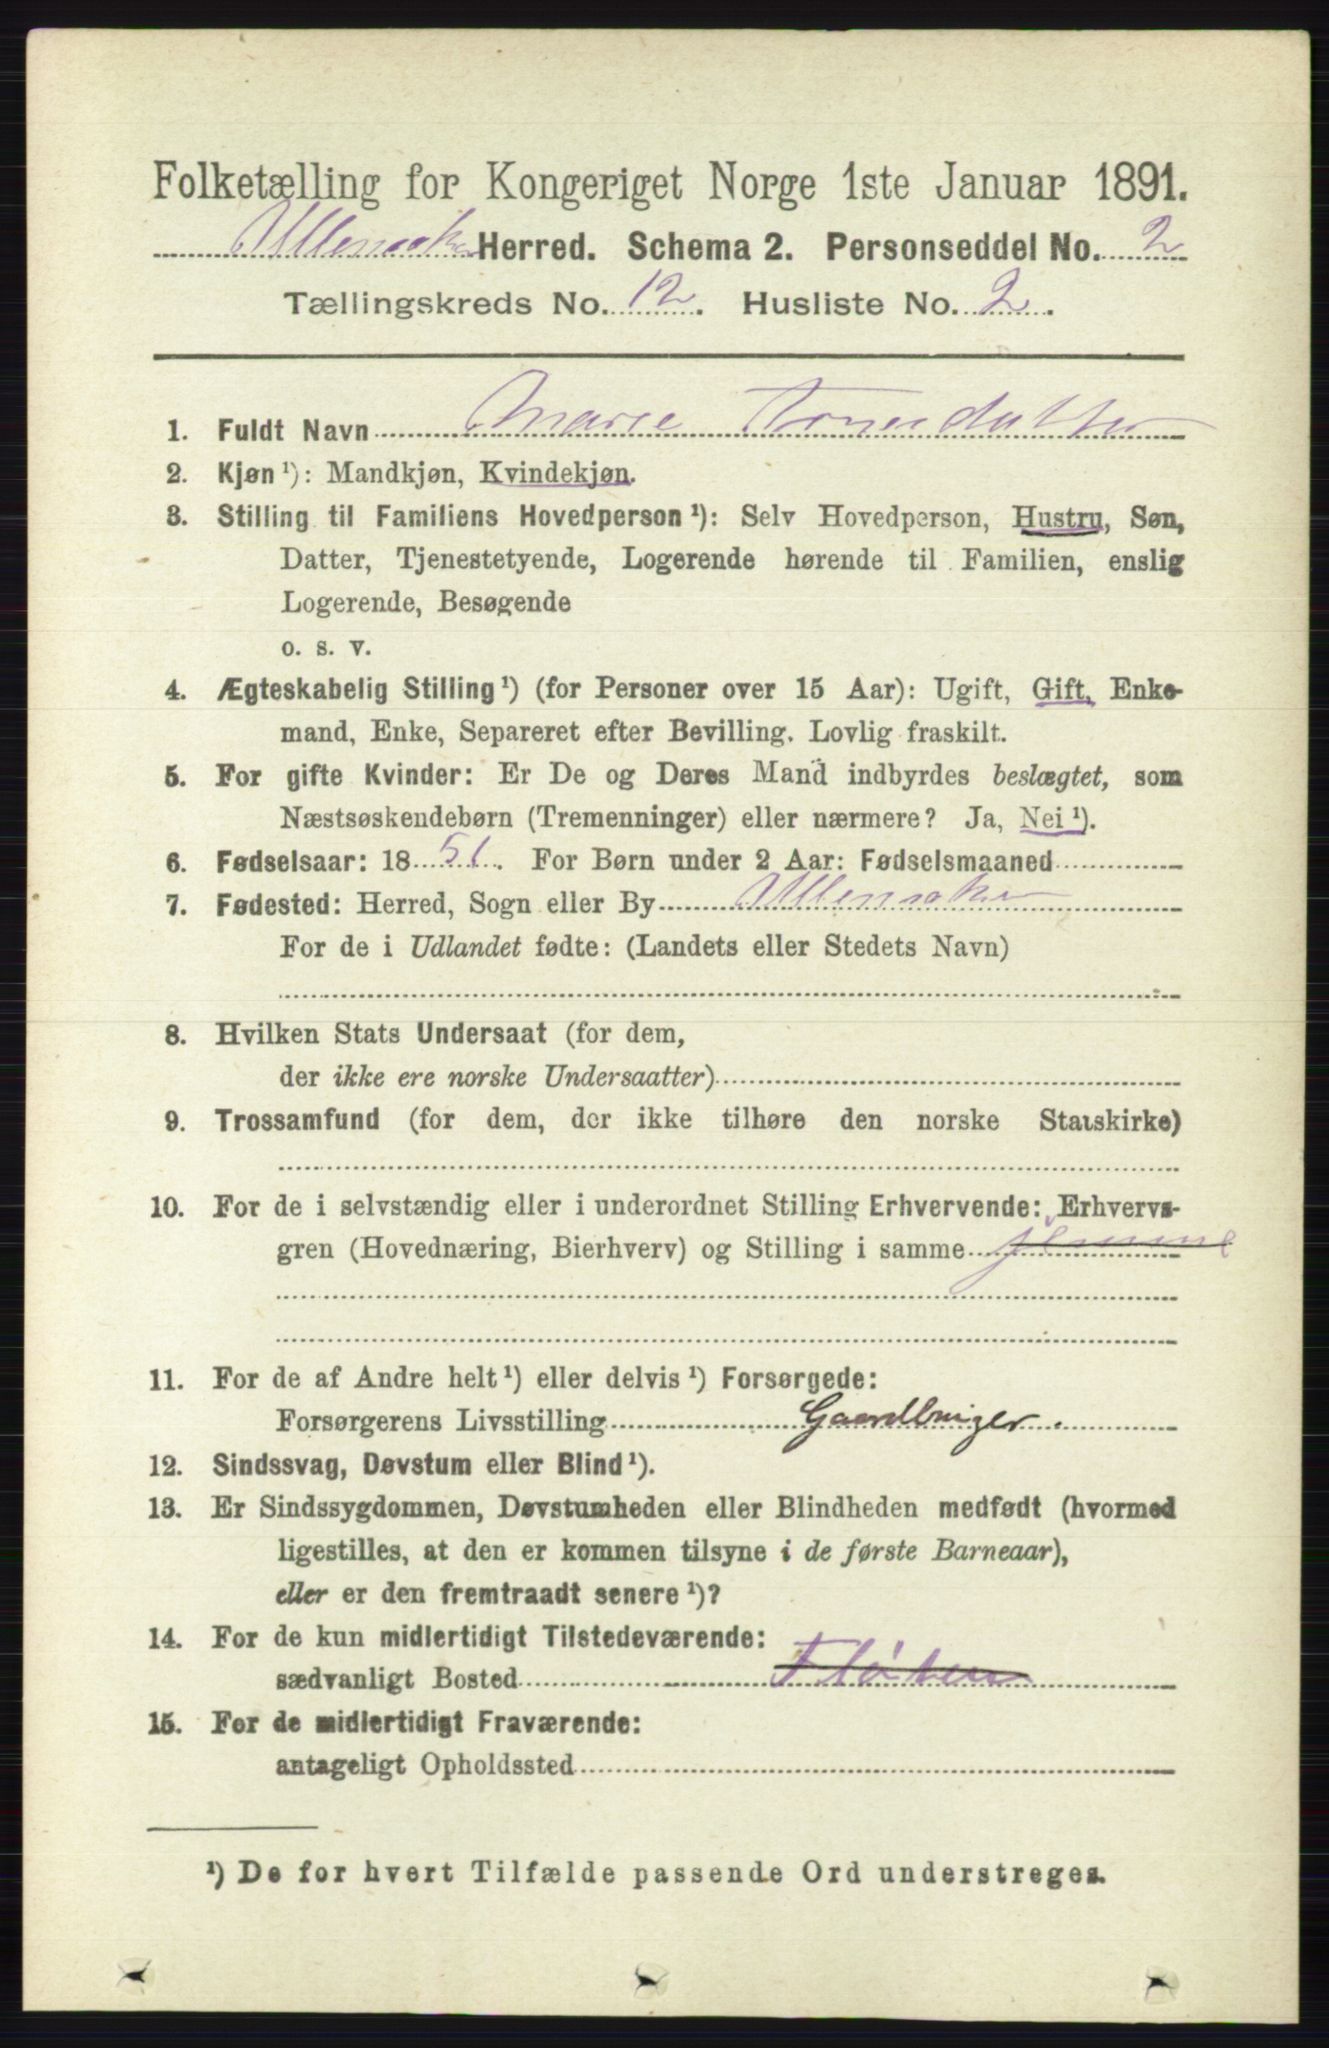 Folketælling for Kongeriget Norge 1ste Januar 1891.
Ullensaker Herred. Schema 2. Personseddel No. 2
Tællingskreds No. 12. Husliste No. 2.
1. Fuldt Navn Marie Arnesdatter
2. Kjøn ¹): Mandkjøn, Kvindekjøn.
3. Stilling til Familiens Hovedperson ¹): Selv Hovedperson, Hustru, Søn,
Datter, Tjenestetyende, Logerende hørende til Familien, enslig
Logerende, Besøgende
o. s. v.
4. Ægteskabelig Stilling ¹) (for Personer over 15 Aar): Ugift, Gift, Enke-
mand, Enke, Separeret efter Bevilling. Lovlig fraskilt.
5. For gifte Kvinder: Er De og Deres Mand indbyrdes beslægtet, som
Næstsøskendebørn (Tremenninger) eller nærmere? Ja, Nei ¹).
6. Fødselsaar: 1851. For Børn under 2 Aar: Fødselsmaaned
7. Fødested: Herred, Sogn eller By Ullensaker
For de i Udlandet fødte: (Landets eller Stedets Navn)
8. Hvilken Stats Undersaat (for dem,
der ikke ere norske Undersaatter)
9. Trossamfund (for dem, der ikke tilhøre den norske Statskirke)
10. For de i selvstændig eller i underordnet Stilling Erhvervende: Erhvervs-
gren (Hovednæring, Bierhverv) og Stilling i samme
11. For de af Andre helt ¹) eller delvis ¹) Forsørgede:
Forsørgerens Livsstilling Gaardbruger.
12. Sindssvag, Døvstum eller Blind ¹).
13. Er Sindssygdommen, Døvstumheden eller Blindheden medfødt (hvormed
ligestilles, at den er kommen tilsyne i de første Barneaar),
eller er den fremtraadt senere ¹)?
14. For de kun midlertidigt Tilstedeværende:
sædvanligt Bosted Fløten
15. For de midlertidigt Fraværende:
antageligt Opholdssted
¹) De for hvert Tilfælde passende Ord understreges.